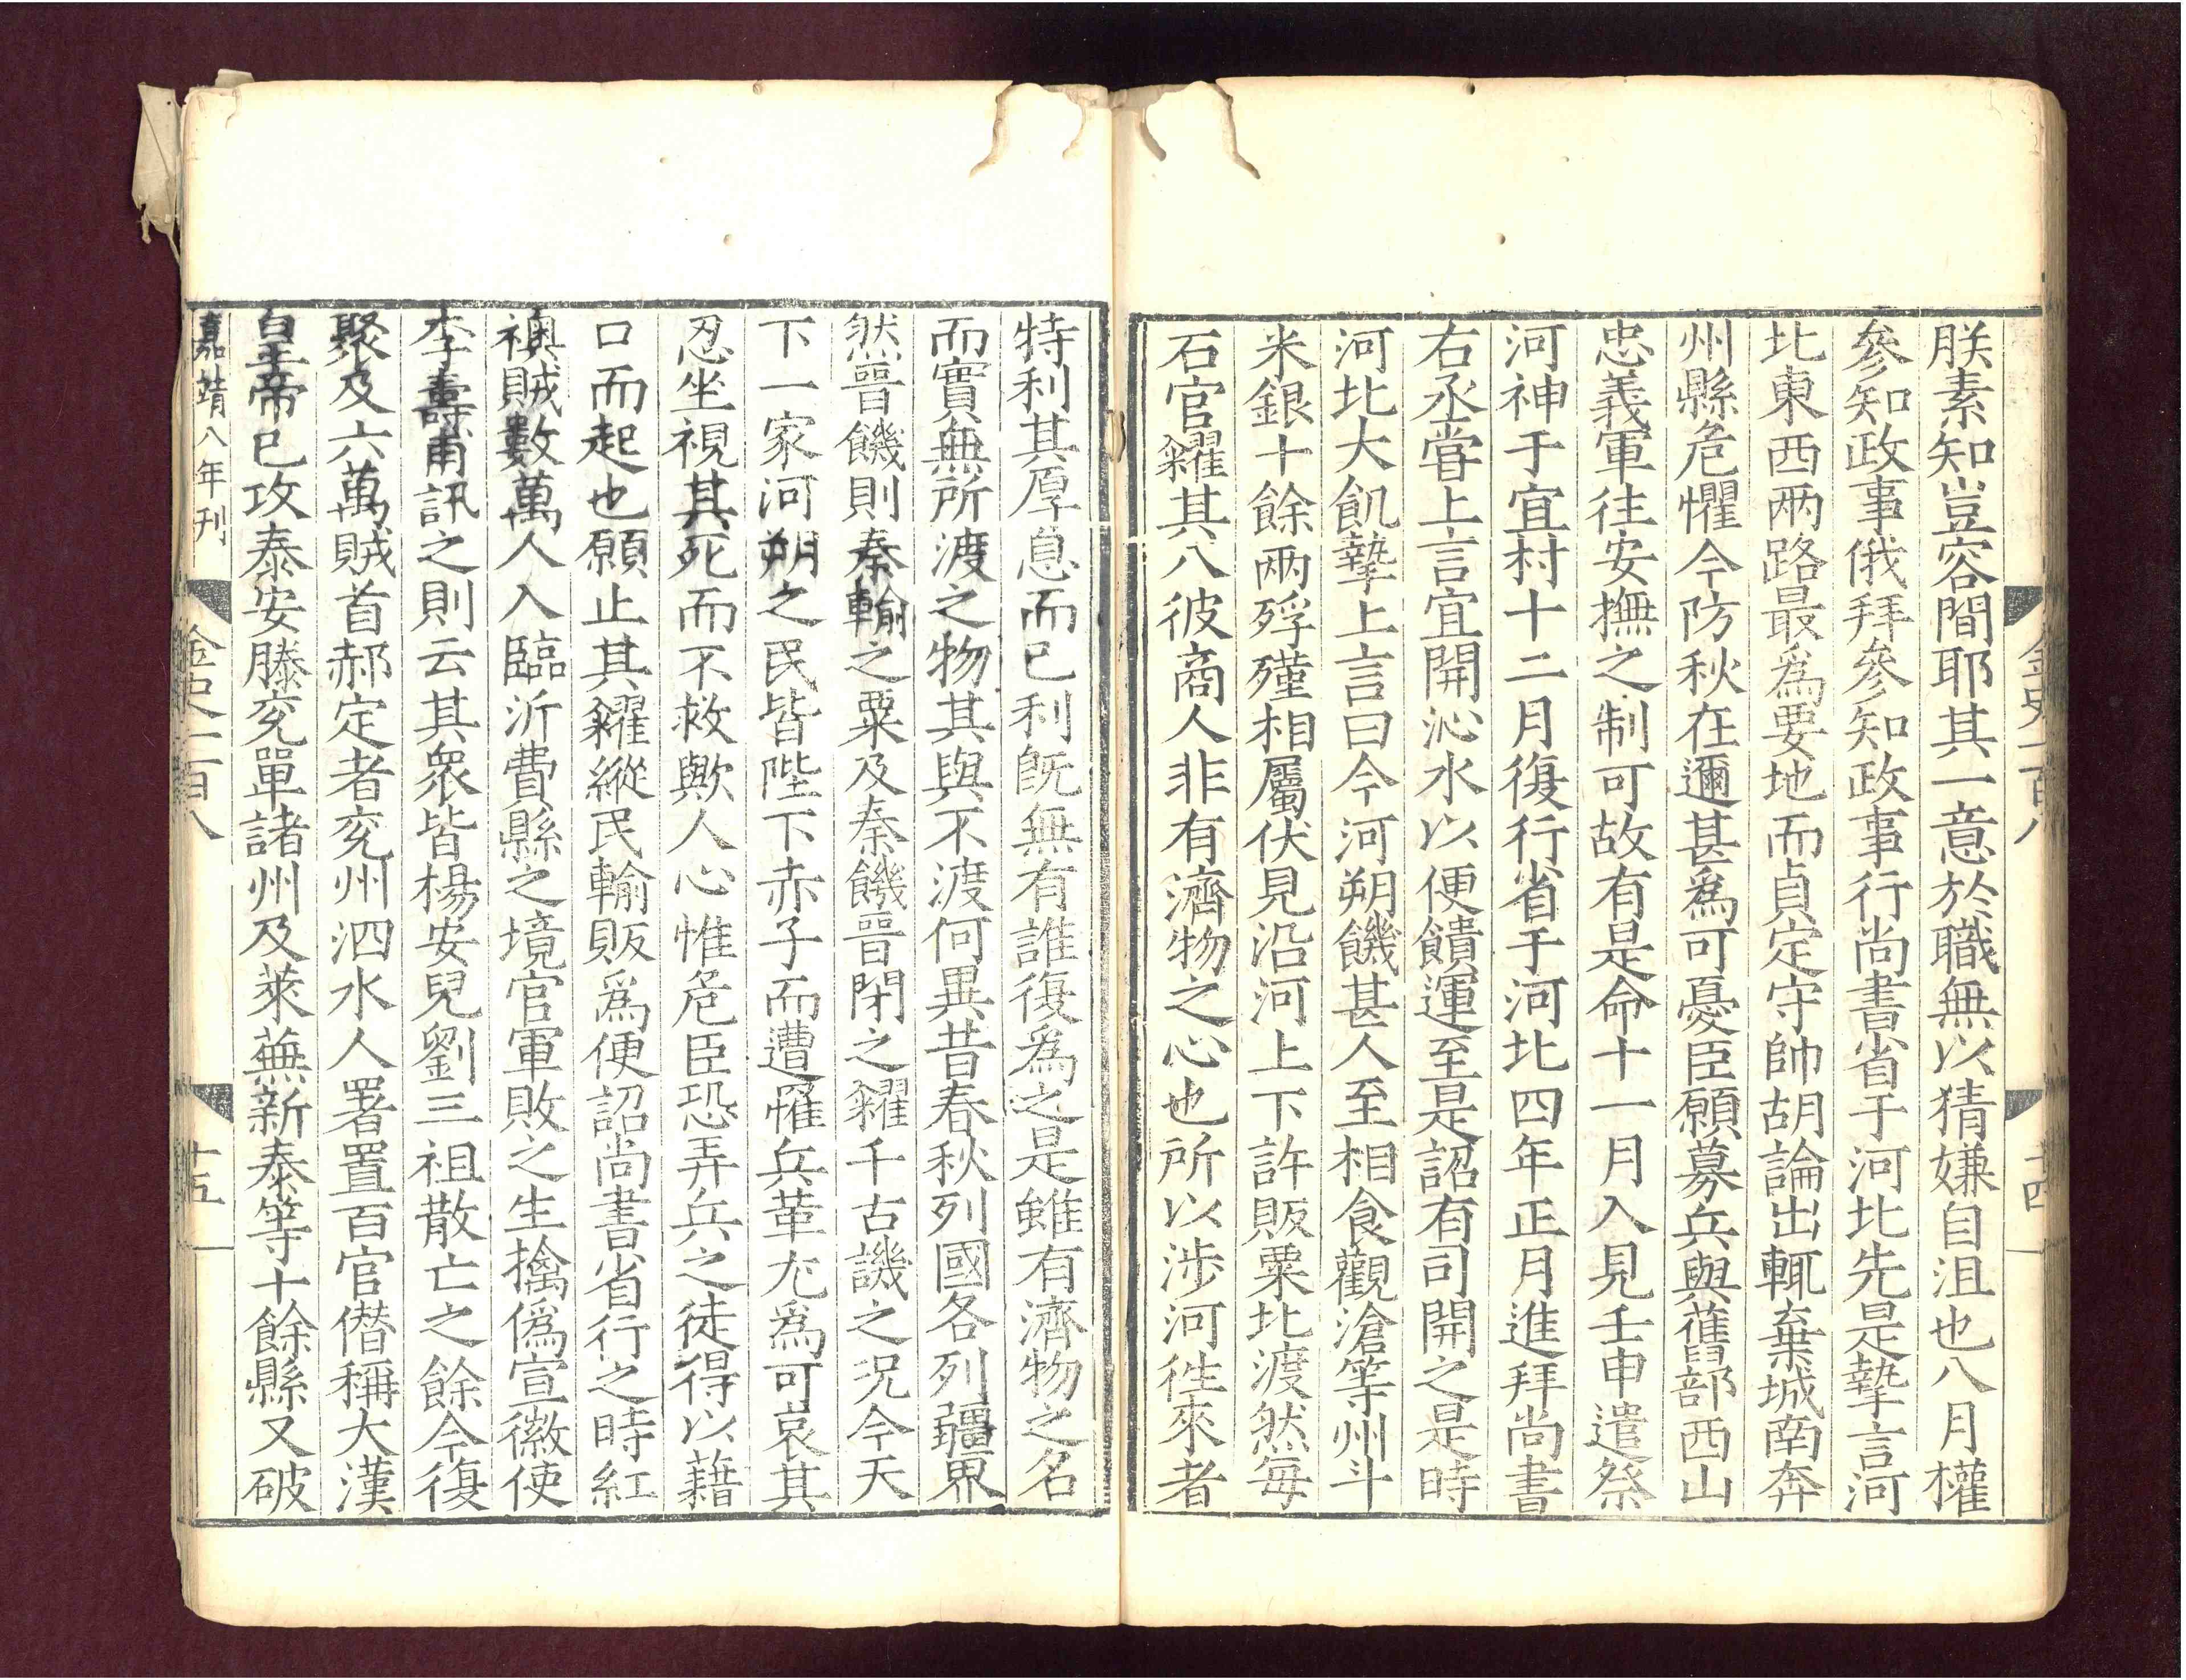 朕素知豈容間耶其一意於職無以猜嫌自沮也八月權
參知政事俄拜參知政事行尚書省于河北先是摯言河
北東西兩路最爲要地而貞定守帥胡論出輒棄城南奔
州縣危懼今防秋在邇甚爲可憂臣願募兵與舊部西山
忠義軍往安撫之制可故有是命十一月入見壬申遣祭
河神于宜村十二月復行省于河北四年正月進拜尚書
右丞嘗上言宜開沁水以便饋運至是詔有司開之是時
河北大飢摯上言曰今河朔饑甚人至相食觀滄等州斗
米銀十餘兩殍殣相屬伏見沿河上下許販粟北渡然每
石官糴其八彼商人非有濟物之心也所以涉河往來者
金史一百八
十四
特利其厚息而已利旣無有誰復爲之是雖有濟物之名
而實無所渡之物其與不渡何異昔春秋列國各列疆界
然晉饑則秦輸之粟及秦饑晉閉之糴千古譏之況今天
下一家河朔之民皆陛下赤子而遭罹兵革尤爲可哀其
忍坐視其死而不救歟人心惟危臣恐弄兵之徒得以藉
口而起也願止其糴縱民輸販爲便詔尚書省行之時紅
襖賊數萬人入臨沂費縣之境官軍敗之生擒僞宣徽使
李壽甫訊之則云其衆皆楊安兒劉三祖散亡之餘今復
聚及六萬賊首郝定者兖州泗水人署置百官僭稱大漢
皇帝已攻泰安滕兖單諸州及萊蕪新泰等十餘縣又破
嘉靖八年刊
金史一百八
十五